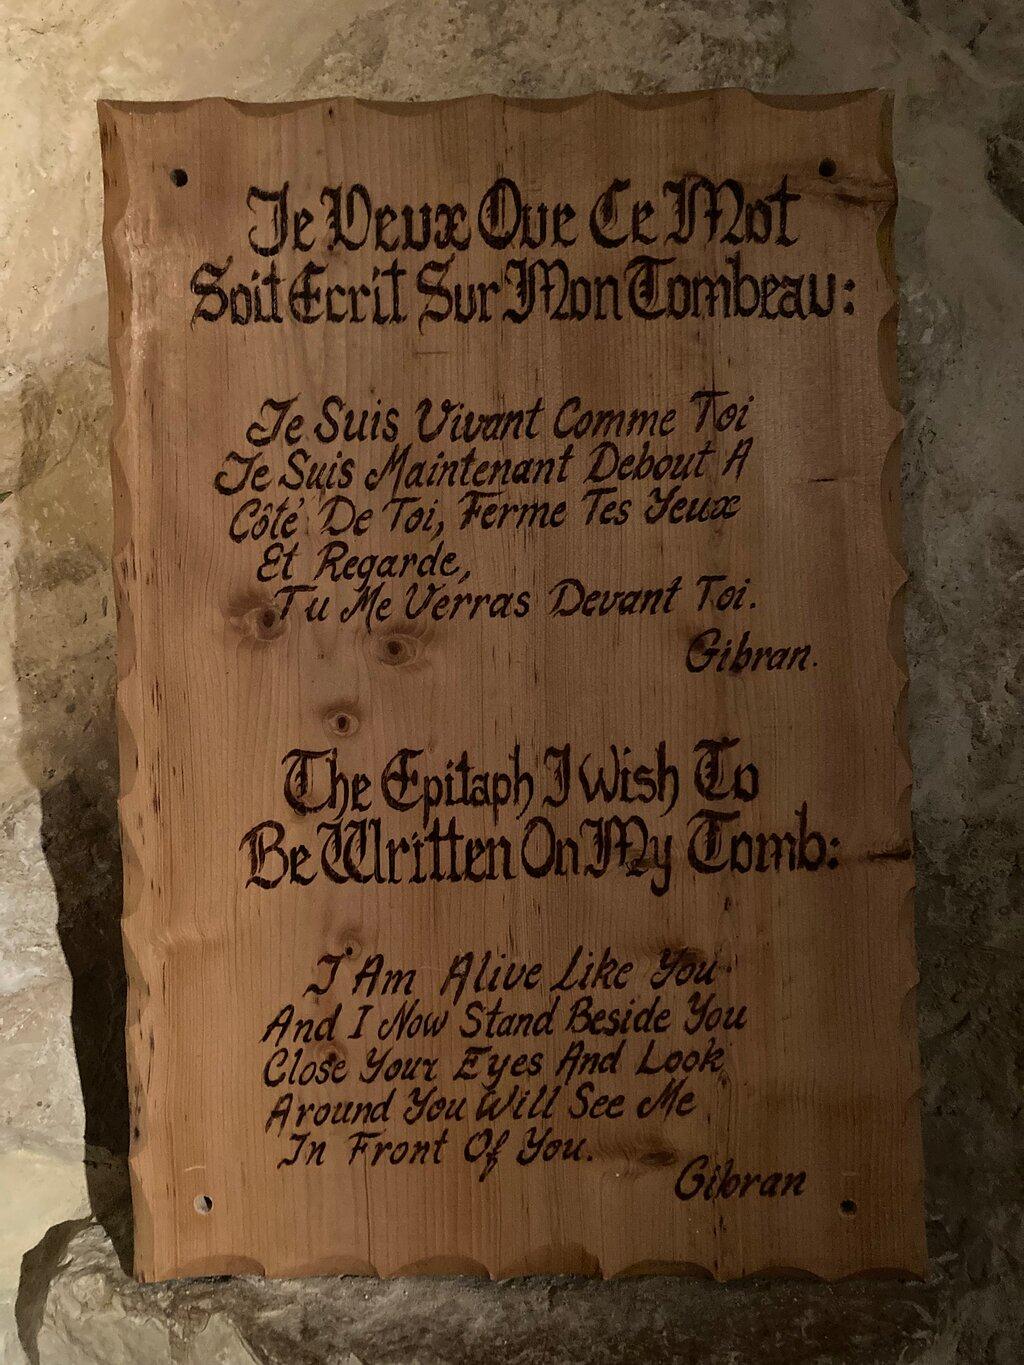 Je Veux Que Ce Mot
Soit Ecrit Sur Mon Tombeau:
Je Suis Vivant Comme Toi
Je Suis Maintenant Debout A
Côté De Toi, Ferme Tes Yeux
Et Regarde,
Tu Me Verras Devant Toi.
Gibran.
The Epitaph I Wish To
Be Written On My Tomb:
I Am Alive Like You
And I Now Stand Beside You
Close Your Eyes And Look
Around You Will See Me
In Front Of You.
Gibran